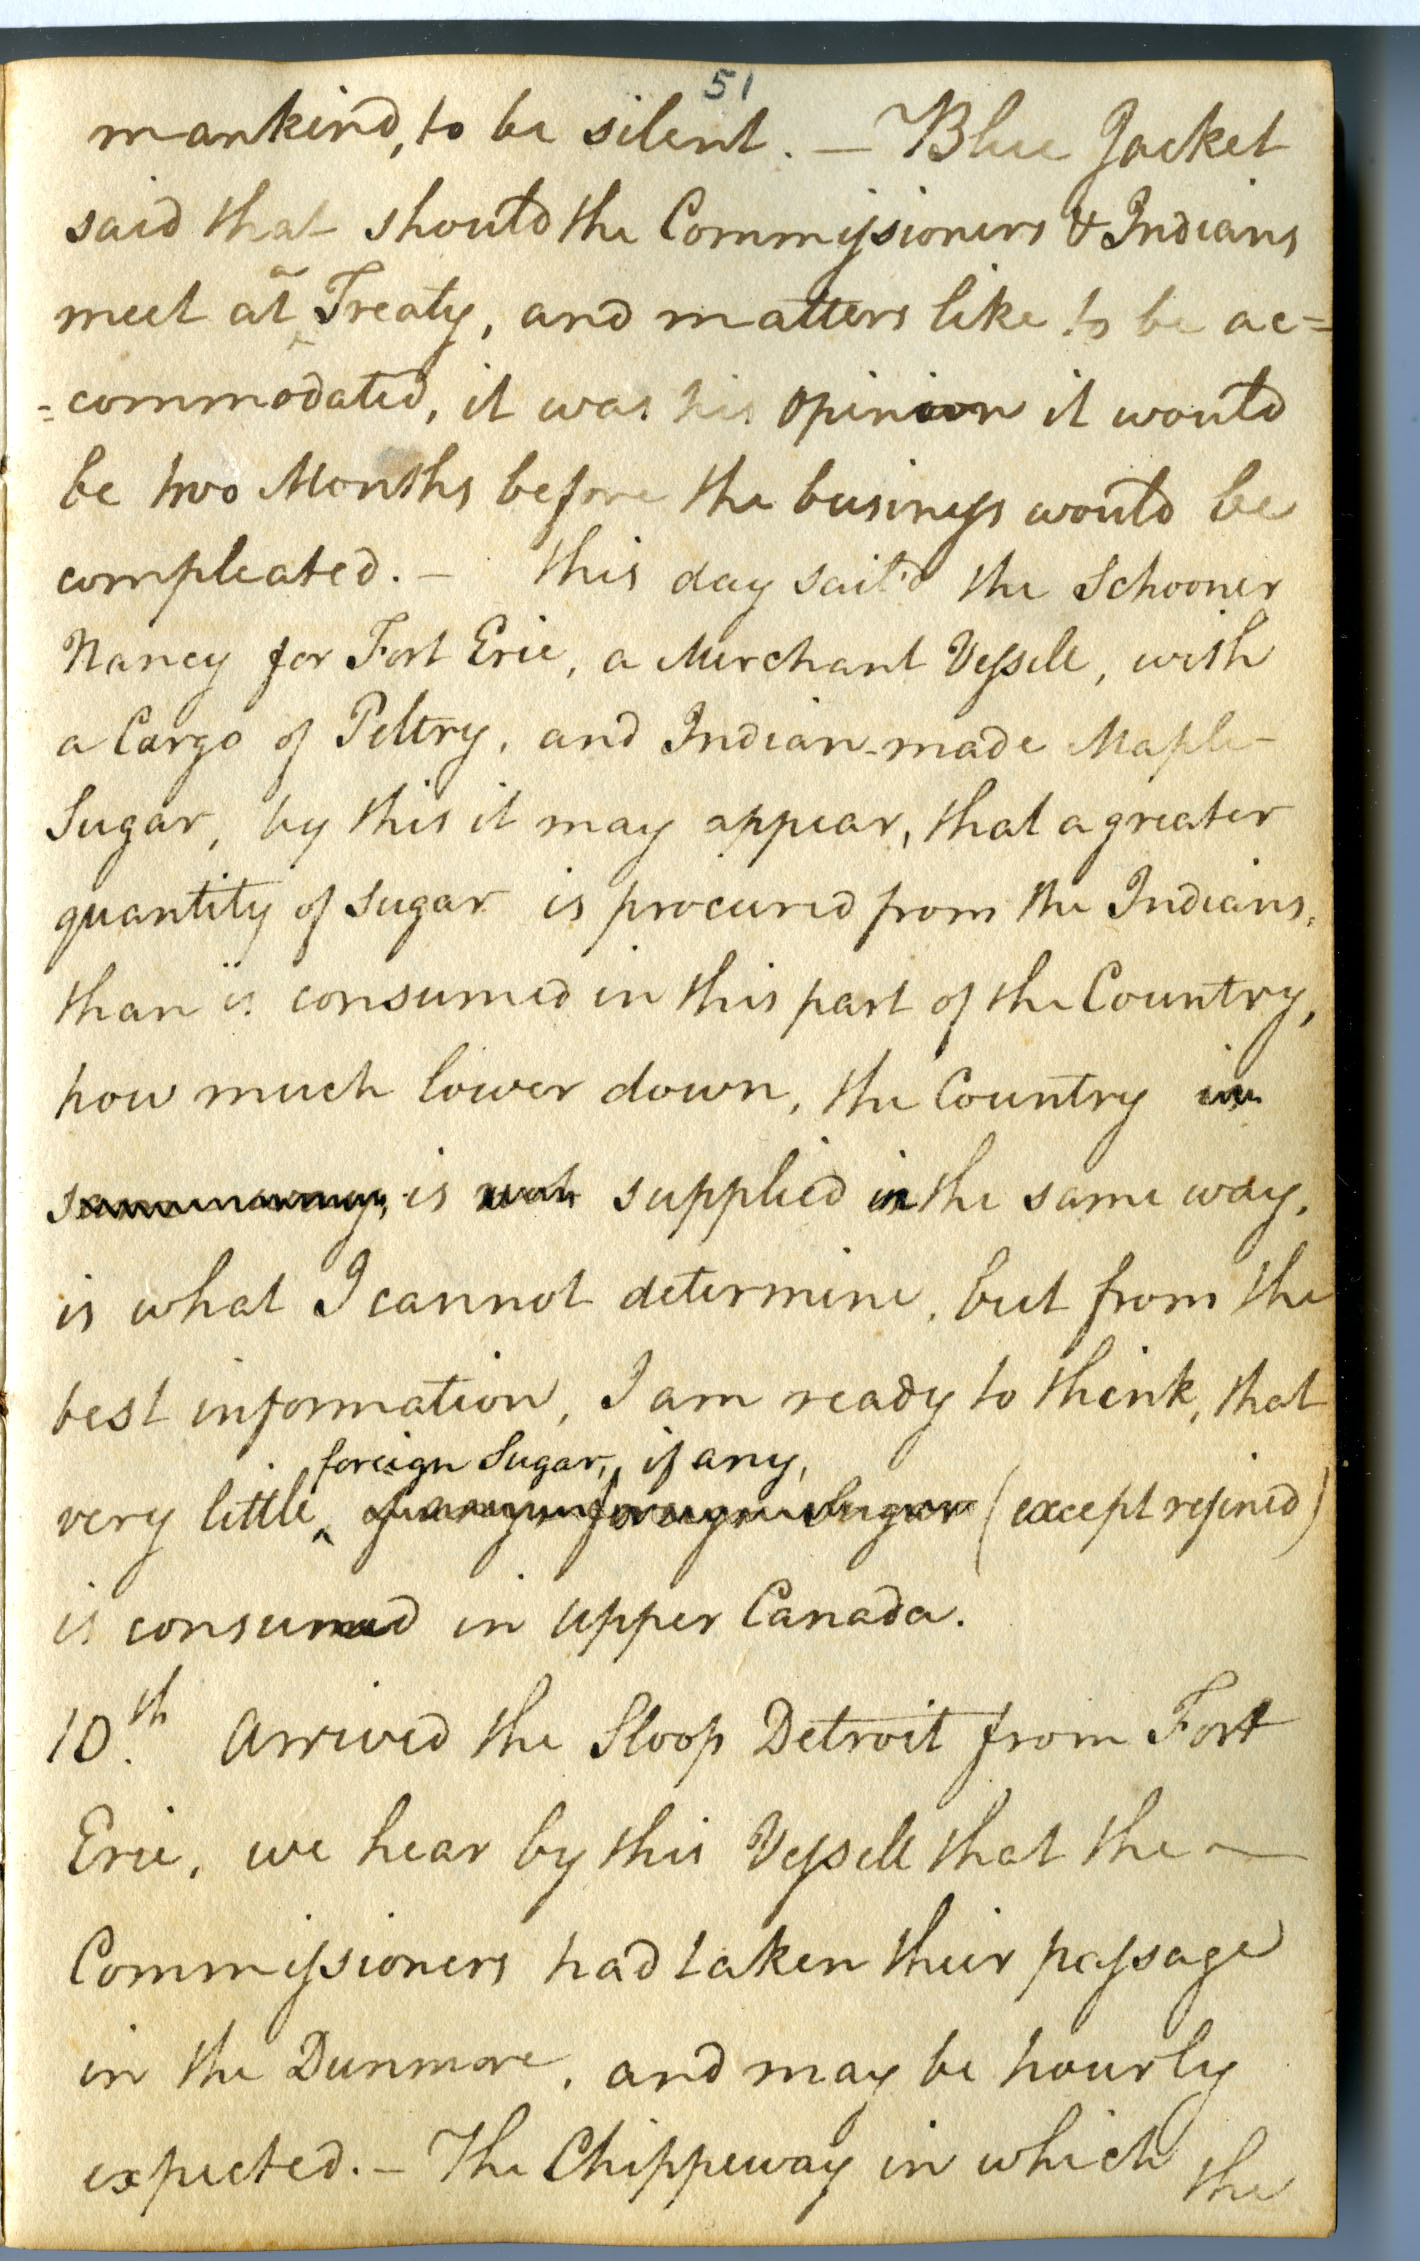 51
mankind, to be silent. — Blue Jacket
said that should the Commissioners & Indians
meet at a Treaty, and matters like to be ac=
=commodated, it was his opinion it would
be two Months before the business would be
compleated. — this day sail'd the Schooner
Nancy for Fort Erie, a Merchant Vessell, with
a Cargo of Peltry, and Indian-made Maple-
Sugar, by this it may appear, that a greater
quantity of sugar is procured from the Indians,
than is consumed in this part of the Country,
how much lower down, the Country in
is not supplied in the same way,
is what I cannot determine, but from the
best information, I am ready to think, that
foreign Sugar, if any,
very little if any foreign Sugar (except refined)
is consumed in upper Canada.
10th. Arrived the Sloop Detroit from Fort
Erie, we hear by this Vessell that the —
Commissioners had taken their passage
in the Dunmore, and may be hourly
expected. — The Chippeway in which
the